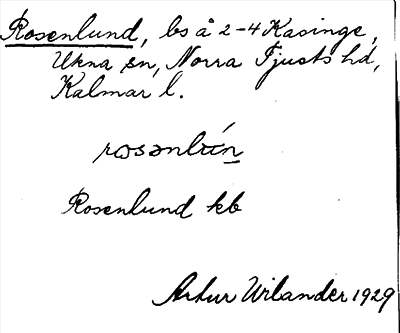 Rosenlund, bs å 2-4 Kasinge,
Ukna sn, Norra Tjusts hd,
Kalmar l.
rosənlún
Rosenlund kb
Artur Wilander 1929